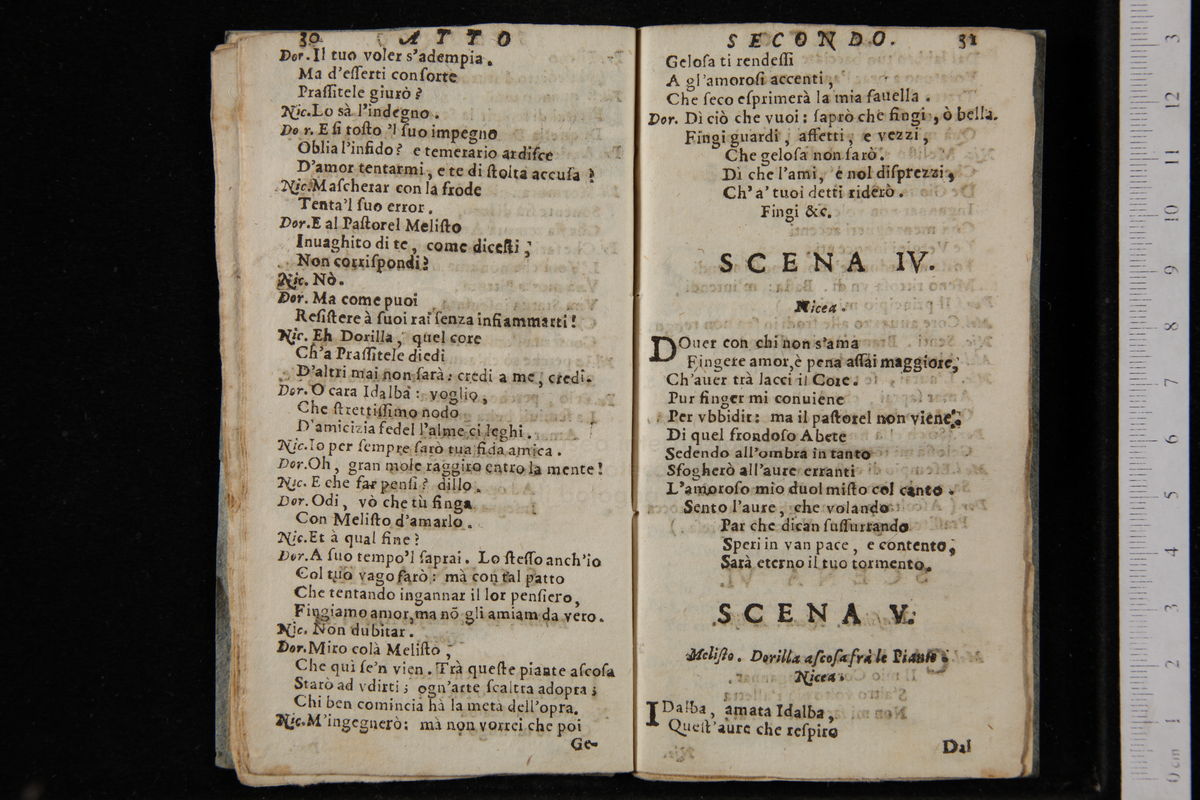 30 ATTO
Dor. Il tuo voler s'adempia.
Ma d'eſſerti conſorte
Praſſitele giurò?
Nic. Lo sà l'indegno.
Dor. E ſi toſto 'l ſuo impegno
Oblia l'infido? e temerario ardiſce
D'amor tentarmi, e te di ſtolta accuſa?
Nic. Maſcherar con la frode
Tenta'l ſuo error.
Dor. E al Paſtorel Meliſto
Inuaghito di te, come diceſti,
Non corriſpondi?
Nic. Nò.
Dor. Ma come puoi
Reſiſtere à ſuoi rai ſenza infiammarti!
Nic. Eh Dorilla, quel core
Ch'a Praſſitele diedi
D'altri mai non ſarà: credi a me, credi.
Dor. O cara Idalba: voglio,
Che ſtrettiſſimo nodo
D'amicizia fedel l'alme ci leghi.
Nic. Io per ſempre ſarò tua fida amica.
Dor. Oh, gran mole raggiro entro la mente!
Nic. E che far penſi? dillo.
Dor. Odi, vò che tù finga
Con Meliſto d'amarlo.
Nic. Et à qual fine?
Dor. A ſuo tempo'l ſaprai. Lo ſteſſo anch'io
Col tuo vago farò: mà con tal patto
Che tentando ingannar il lor penſiero,
Fingiamo amor, ma nõ gli amiam da vero.
Nic. Non dubitar.
Dor. Miro colà Meliſto,
Che quì ſe'n vien. Trà queſte piante aſcoſa
Starò ad vdirti; ogn'arte ſcaltra adopra;
Chi ben comincia hà la metà dell'opra.
Nic. M'ingegnerò: mà non vorrei che poi
Ge-
SECONDO. 31
Geloſa ti rendeſſi
A gl'amoroſi accenti,
Che ſeco eſprimerà la mia fauella.
Dor. Dì ciò che vuoi: ſaprò che fingi, ò bella.
Fingi guardi, affetti, e vezzi,
Che geloſa non ſarò.
Dì che l'ami, e nol diſprezzi,
Ch' a' tuoi detti riderò.
Fingi &c.
SCENA IV.
Nicea.
DOuer con chi non s'ama
Fingere amor, è pena aſſai maggiore,
Ch'auer trà lacci il Core.
Pur finger mi conuiene
Per vbbidir: ma il paſtorel non viene;
Di quel frondoſo Abete
Sedendo all'ombra in tanto
Sfogherò all'aure erranti
L'amoroſo mio duol miſto col canto.
Sento l'aure, che volando
Par che dican ſuſſurrando
Speri in van pace, e contento,
Sarà eterno il tuo tormento.
SCENA V.
Meliſto. Dorilla aſcoſa frà le Piante.
Nicea.
IDalba, amata Idalba,
Queſt'aure che reſpiro
Dal